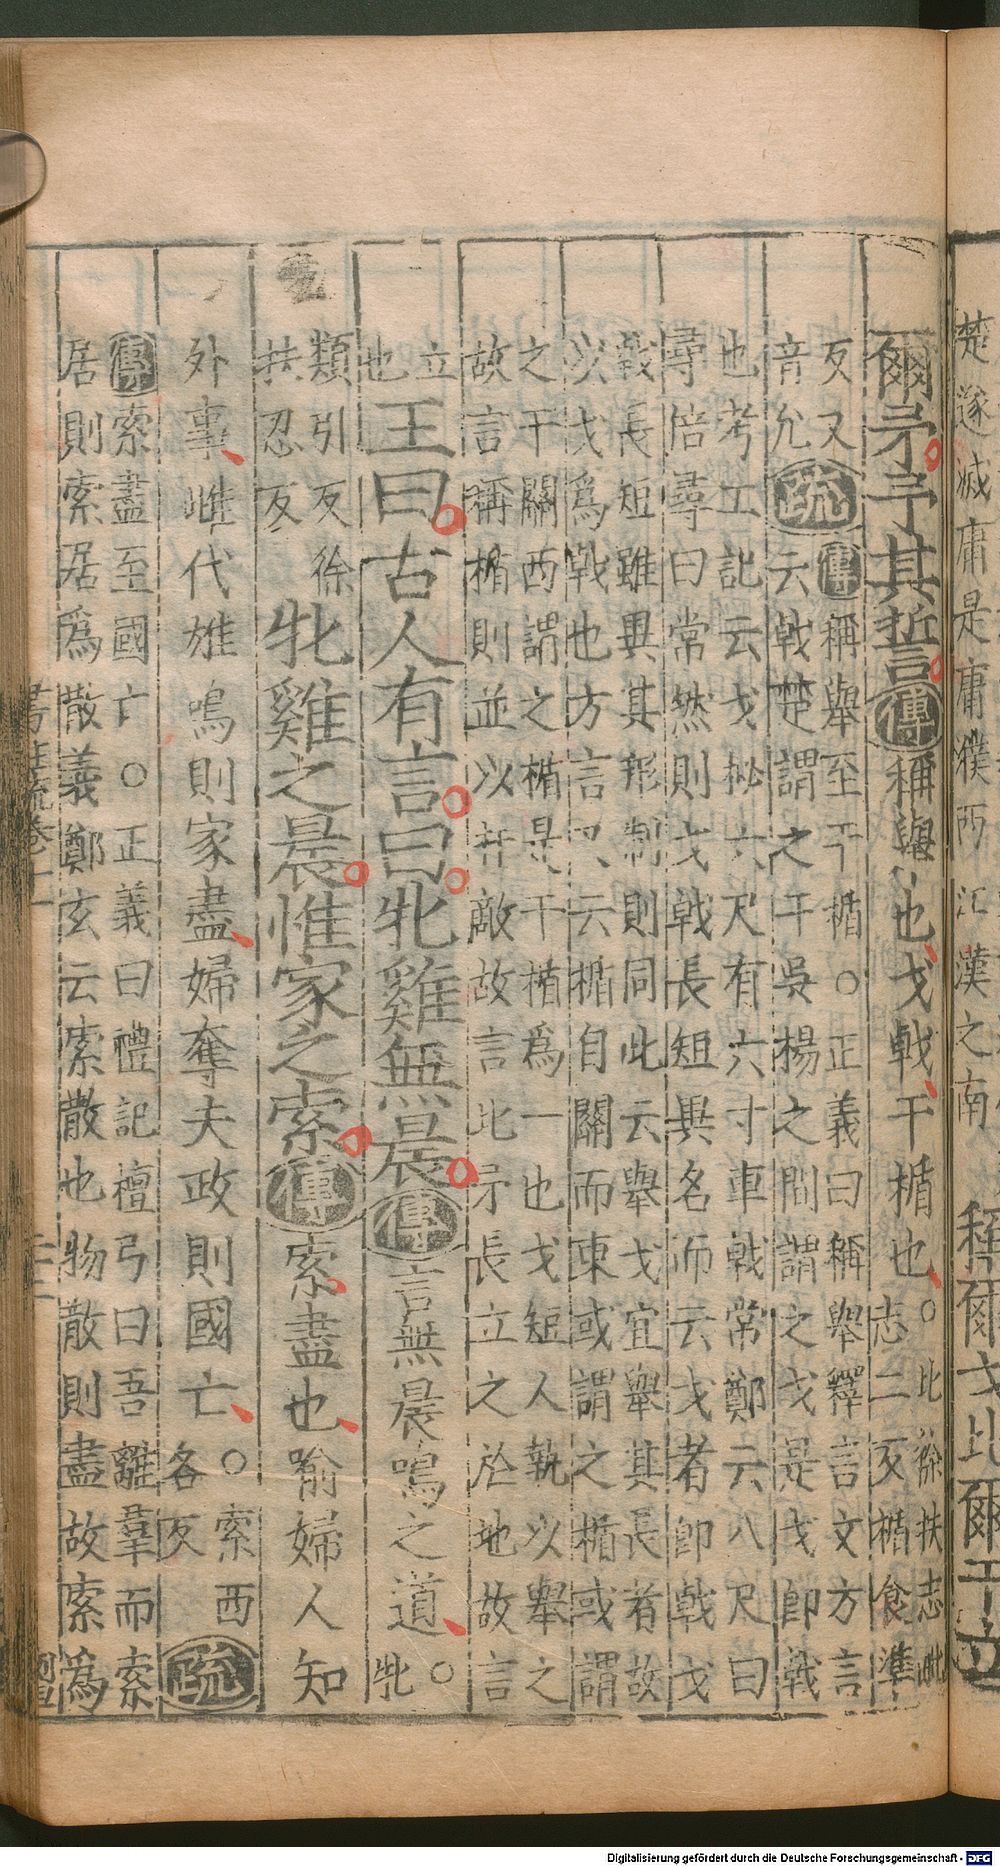 楚遂滅庸是庸濮西江漢之南
稱爾戈比爾干立
爾矛予其誓傳稱舉也戈戟干楯也○比徐扶志毗
志二反楯食準
反又
音允
疏
傳稱舉至干楯○正義曰稱舉釋言文方言
云戟楚謂之干吳楊之間謂之戈是戈卽戟
也考工記云戈柲六尺有六寸車戟常鄭云八尺曰
尋倍尋曰常然則戈戟長短異名而云戈者卽戟戈
戟長短雖異其形制則同此云舉戈宜舉其長者故
以戈爲戟也方言又云楯自關而東或謂之楯或謂
之干關西謂之楯是干楯爲一也戈短人執以舉之
故言稱楯則並以扞敵故言比矛長立之於地故言
立
也
王曰古人有言曰牝雞無晨傳言無晨鳴之道○牝
類引反徐
扶忍反
牝雞之晨惟家之索傳索盡也喻婦人知
外事雌代雄鳴則家盡婦奪夫政則國亡○索西
各反
疏
傳索盡至國亡○正義曰禮記檀弓曰吾離羣而索
居則索居爲散義鄭玄云索散也物散則盡故索爲
書注疏卷十一
Digitalisierung gefördert durch die Deutsche Forschungsgemeinschaft - DFG